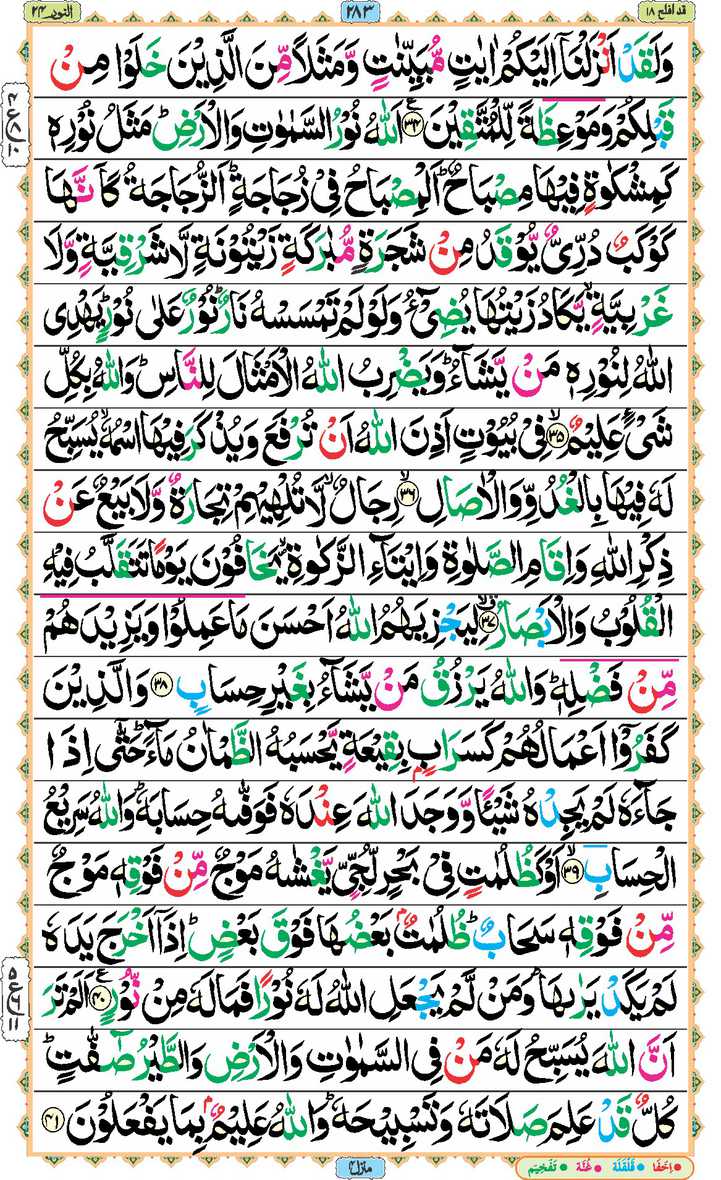 قد افلح ۱۸
۲۸۳
النور ۲۴
وَلَقَدْ اَنْزَلْنَاۤ اِلَيْكُمْ اٰيٰتٍ مُّبَيِّنٰتٍ وَّمَثَلًا مِّنَ الَّذِيْنَ خَلَوْا مِنْ
قَبْلِكُمْ وَمَوْعِظَةً لِّلْمُتَّقِيْنَ ۝۳۴ اَللّٰهُ نُوْرُ السَّمٰوٰتِ وَالْاَرْضِ ؕ مَثَلُ نُوْرِهٖ
كَمِشْكٰوةٍ فِيْهَا مِصْبَاحٌ ؕ اَلْمِصْبَاحُ فِيْ زُجَاجَةٍ ؕ اَلزُّجَاجَةُ كَاَنَّهَا
كَوْكَبٌ دُرِّيٌّ يُّوْقَدُ مِنْ شَجَرَةٍ مُّبٰرَكَةٍ زَيْتُوْنَةٍ لَّا شَرْقِيَّةٍ وَّلَا
غَرْبِيَّةٍ ۙ يَّكَادُ زَيْتُهَا يُضِيْٓءُ وَلَوْ لَمْ تَمْسَسْهُ نَارٌ ؕ نُوْرٌ عَلٰى نُوْرٍ ؕ يَهْدِى
اللّٰهُ لِنُوْرِهٖ مَنْ يَّشَآءُ ؕ وَيَضْرِبُ اللّٰهُ الْاَمْثَالَ لِلنَّاسِ ؕ وَاللّٰهُ بِكُلِّ
شَيْءٍ عَلِيْمٌ ۝۳۵ۙ فِيْ بُيُوْتٍ اَذِنَ اللّٰهُ اَنْ تُرْفَعَ وَيُذْكَرَ فِيْهَا اسْمُهٗ ۙ يُسَبِّحُ
لَهٗ فِيْهَا بِالْغُدُوِّ وَالْاٰصَالِ ۝۳۶ۙ رِجَالٌ ۙ لَّا تُلْهِيْهِمْ تِجَارَةٌ وَّلَا بَيْعٌ عَنْ
ذِكْرِ اللّٰهِ وَاِقَامِ الصَّلٰوةِ وَاِيْتَآءِ الزَّكٰوةِ ۙ يَخَافُوْنَ يَوْمًا تَتَقَلَّبُ فِيْهِ
الْقُلُوْبُ وَالْاَبْصَارُ ۝۳۷ۙ لِيَجْزِيَهُمُ اللّٰهُ اَحْسَنَ مَا عَمِلُوْا وَيَزِيْدَهُمْ
مِّنْ فَضْلِهٖ ؕ وَاللّٰهُ يَرْزُقُ مَنْ يَّشَآءُ بِغَيْرِ حِسَابٍ ۝۳۸ وَالَّذِيْنَ
كَفَرُوْۤا اَعْمَالُهُمْ كَسَرَابٍۭ بِقِيْعَةٍ يَّحْسَبُهُ الظَّمْاٰنُ مَآءً ؕ حَتّٰۤى اِذَا
جَآءَهٗ لَمْ يَجِدْهُ شَيْـًٔا وَّوَجَدَ اللّٰهَ عِنْدَهٗ فَوَفّٰىهُ حِسَابَهٗ ؕ وَاللّٰهُ سَرِيْعُ
الْحِسَابِ ۝۳۹ۙ اَوْ كَظُلُمٰتٍ فِيْ بَحْرٍ لُّجِّيٍّ يَّغْشٰىهُ مَوْجٌ مِّنْ فَوْقِهٖ مَوْجٌ
مِّنْ فَوْقِهٖ سَحَابٌ ؕ ظُلُمٰتٌۢ بَعْضُهَا فَوْقَ بَعْضٍ ؕ اِذَاۤ اَخْرَجَ يَدَهٗ
لَمْ يَكَدْ يَرٰىهَا ؕ وَمَنْ لَّمْ يَجْعَلِ اللّٰهُ لَهٗ نُوْرًا فَمَا لَهٗ مِنْ نُّوْرٍ ۝۴۰ اَلَمْ تَرَ
اَنَّ اللّٰهَ يُسَبِّحُ لَهٗ مَنْ فِى السَّمٰوٰتِ وَالْاَرْضِ وَالطَّيْرُ صٰٓفّٰتٍ ؕ
كُلٌّ قَدْ عَلِمَ صَلَاتَهٗ وَتَسْبِيْحَهٗ ؕ وَاللّٰهُ عَلِيْمٌۢ بِمَا يَفْعَلُوْنَ ۝۴۱
منزل ۴
اِخفَا قَلقَلَة غُنَّه تَفخِيم